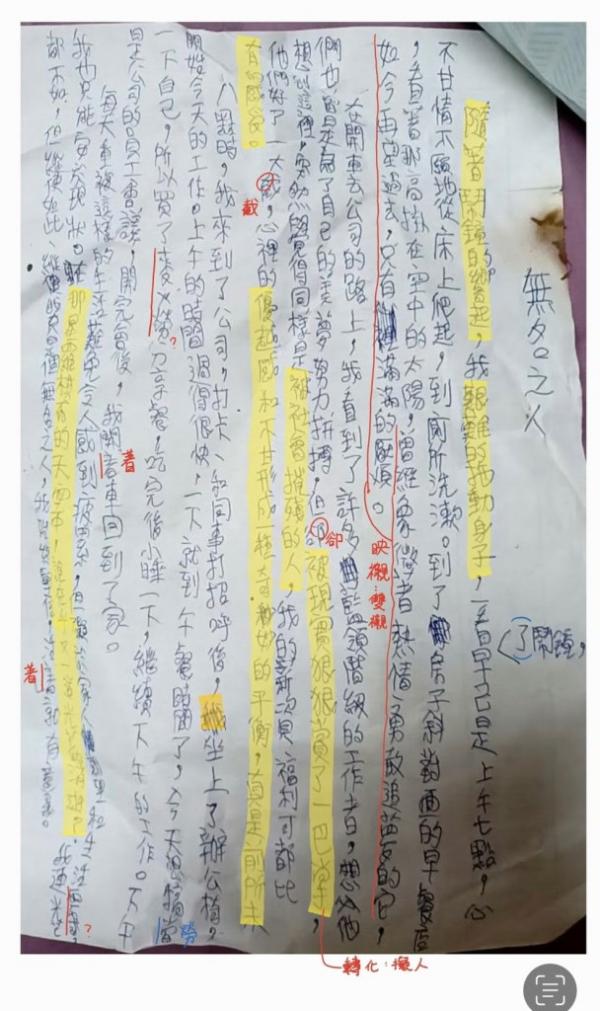 無名之人
隨著鬧鐘的響起,我艱難的拖動身子,一看早已是上午七點,心
了鬧鐘,
不甘情不願地從床上爬起,到廁所洗漱。到了房子斜對面的早餐店
,看著那高掛在空中的太陽,曾經象徵著熱情、勇敢追夢的它,
如今再望過去,只有滿滿的厭煩。
映襯:雙襯
在開車去公司的路上,我看到了許多藍領階級的工作者,想必他
們也曾是為了自己的美夢努力拼搏,但卻被現實狠狠賞了一巴掌,
卻
轉化:擬人
想到這裡,突然覺得同樣是被社會摧殘的人,我的薪資福利可都比
他們好了一大截,心裡的優越感和不甘形成一種奇妙的平衡,真是前所未
截
有的感受。
八點時,我來到了公司,打卡、和同事打招呼後,坐上了辦公椅,
開始今天的工作。上午的時間過得很快,一下就到午餐時間了,今天想犒賞
勞
一下自己,所以買了麥分享餐,吃完後小睡一下,繼續下午的工作。下午
?
是公司的員工會議,開完會後,我開著車回到了家。
著
每天重複這樣的生活難免令人感到疲累,但礙於家人和生活
?
我也只能安於現狀。那是
都不如,但縱使如此,個無名之人,我活著就有意義。
著